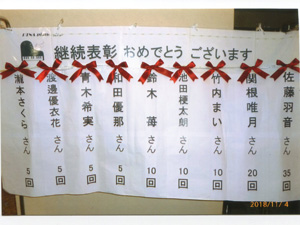 継続表彰 おめでとう ございます
佐藤羽音 さん 35回
関根唯月 さん 20回
竹内まい さん 10回
池田梗太朗 さん 10回
鈴木 苺 さん 10回
和田優那 さん 5回
青木希実 さん 5回
渡邊優衣花 さん 5回
瀧本さくら さん 5回
2018/11/4